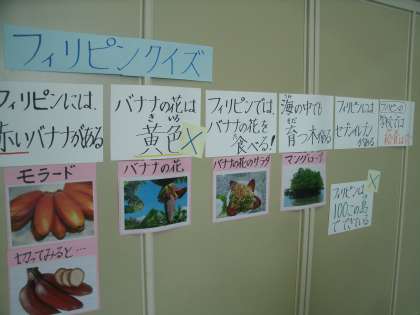 フィリピンクイズ
フィリピンには、
赤いバナナがある
モラード
切ってみると…
バナナの花は
きいろ
黄色
×
バナナの花
フィリピンでは、
バナナの花を
食べる!
バナナの花のサラダ
海の中でも
育つ木がある
マングローブ
フィリピンには
セブンイレブン
がある
フィリピンの
フィリピンは、
100この島
でできている
×